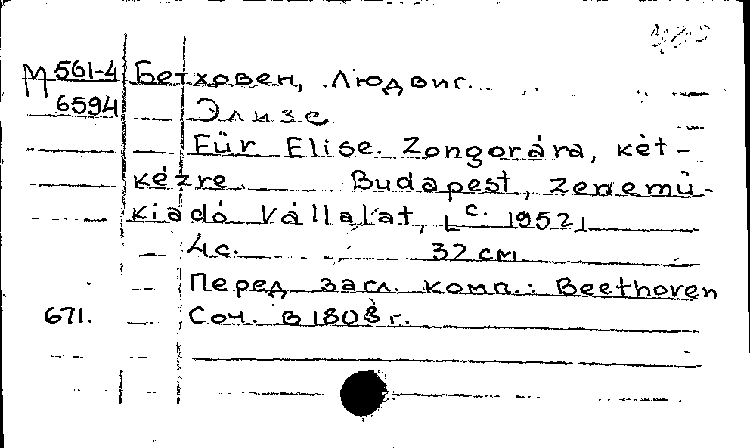 М 561-4 Бетховен, Людвиг.
6594 Элизе
Für Elise. Zongorára, két-
kézre Budapest, Zenemű-
kiadó Vállalat, [c. 1952]
4 с. 32 см
Перед загл. комп.: Beethoven
671. Соч. в 1808 г.